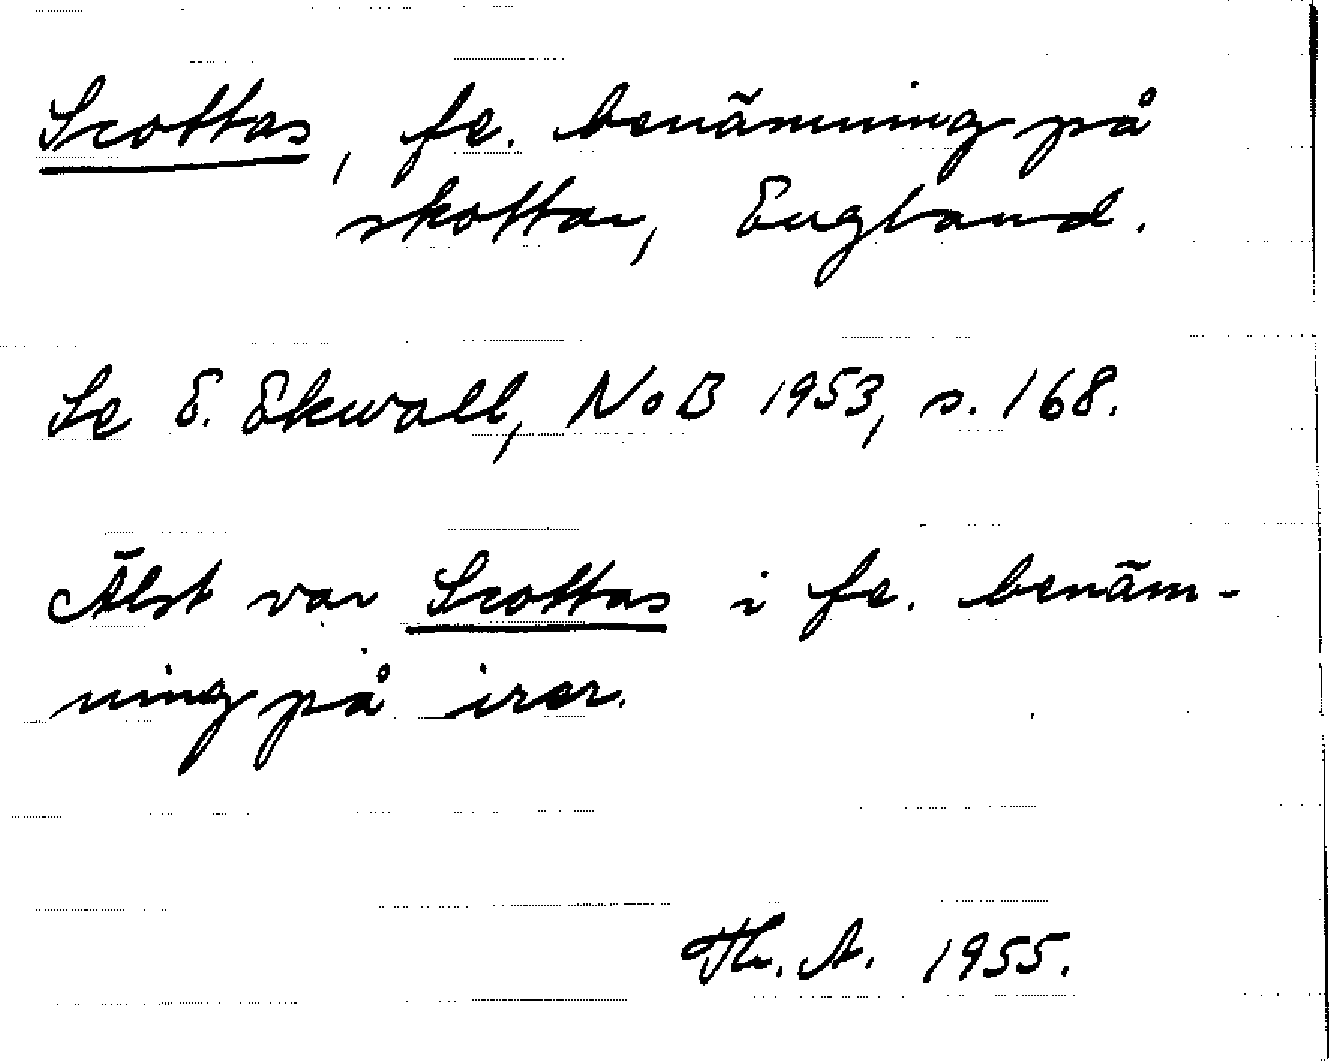 Scottas, fe. benämning på
skottar, England.
Se E. Ekwall, NoB 1953, s. 168.
Älst var Scottas i fe. benäm-
ning på irer.
Th. A. 1955.